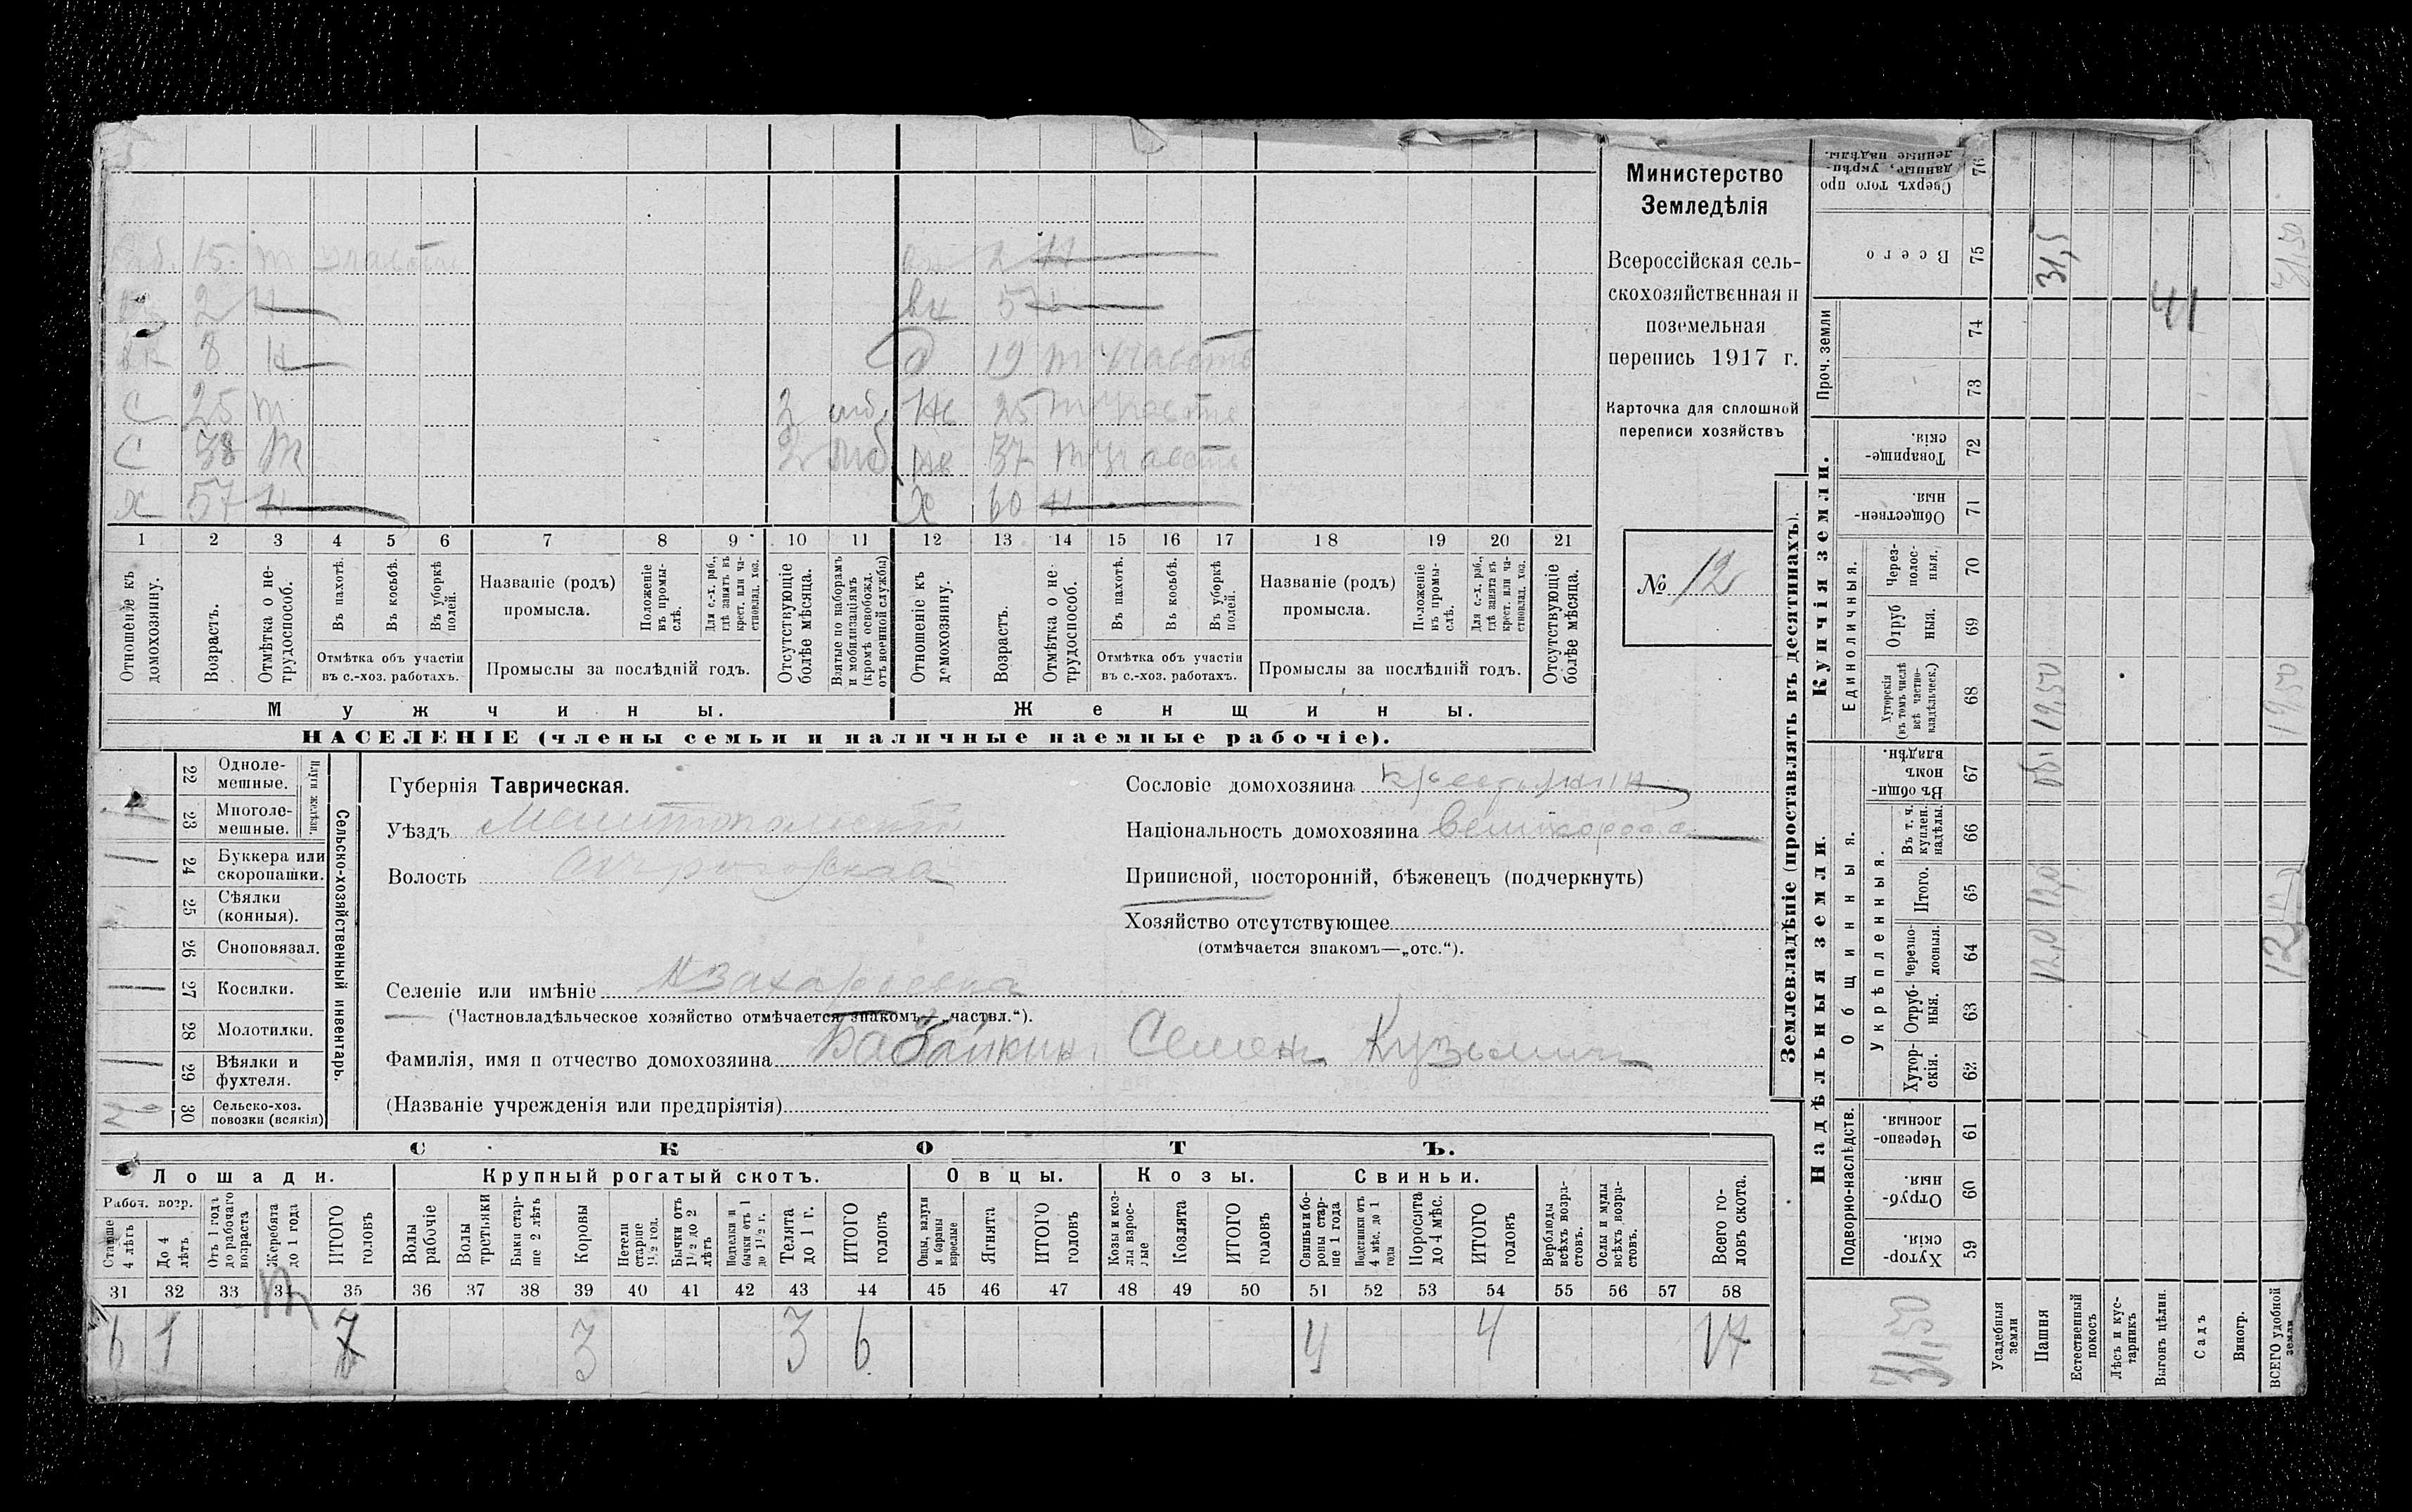 Министерство
Земледѣлія
Всероссійская сель-
скохозяйственная и
поземельная
перепись 1917 г.
Карточка для сплошной
переписи хозяйствъ
№ 12
15 м
вк 2 н
2 н
вн 5 н
вк 8 н
19
С 25 м
2 моб. нв 25
С 38 м
2 моб нв 37
х 57 н
х 60 н
1 2 3 4 5 6 7 8 9 10 11 12 13 14 15 16 17 18 19 20 21
Отношеніе къ домохозяину.
Возрастъ.
Отмѣтка о не-трудоспособ.
Въ пахотѣ.
Въ косьбѣ.
Въ уборкѣ полей.
Отмѣтка объ участіи въ с.-хоз. работахъ.
Названіе (родъ) промысла.
Положеніе въ промы-слѣ.
Для с.-х. раб., гдѣ занятъ въ крест. или ча-стновлад. хоз.
Промыслы за послѣдній годъ.
Отсутствующіе болѣе мѣсяца.
Взятые по наборамъ и мобилизаціямъ (кромѣ освобожд. отъ военной службы)
Отношеніе къ домохозяину.
Возрастъ.
Отмѣтка о не-трудоспособ.
Въ пахотѣ.
Въ косьбѣ.
Въ уборкѣ полей.
Отмѣтка объ участіи въ с.-хоз. работахъ.
Названіе (родъ) промысла.
Положеніе въ промы-слѣ.
Для с.-х. раб., гдѣ занята въ крест. или ча-стновлад. хоз.
Промыслы за послѣдній годъ.
Отсутствующіе болѣе мѣсяца.
Мужчины.
Женщины.
НАСЕЛЕНІЕ (члены семьи и наличные наемные рабочіе).
Сельско-хозяйственный инвентарь.
Плуги желѣзн.
22 Одноле-мешные.
23 Многоле-мешные.
24 Буккера или скоропашки.
25 Сѣялки (конныя).
26 Сноповязал.
27 Косилки.
28 Молотилки.
29 Вѣялки и фухтеля.
30 Сельско-хоз. повозки (всякія)
Губернія Таврическая.
Уѣздъ Мелитопольскій
Волость
Сословіе домохозяина крестьянин
Національность домохозяина великоросс
Приписной, посторонній, бѣженецъ (подчеркнуть)
Хозяйство отсутствующее
(отмѣчается знакомъ—„отс.“).
Селеніе или имѣніе Н Захарьевка
(Частновладѣльческое хозяйство отмѣчается знакомъ—„частвл.“).
Фамилія, имя и отчество домохозяина Бабайкин Семен Кузьмич
(Названіе учрежденія или предпріятія)
СКОТЪ.
Лошади.
Крупный рогатый скотъ.
Овцы.
Козы.
Свиньи.
Рабоч. возр.
Старше 4 лѣтъ
До 4 лѣтъ
Отъ 1 года до рабочаго возраста
Жеребята до 1 года
ИТОГО головъ
Волы рабочіе
Волы третьяки
Быки стар-ше 2 лѣтъ
Коровы
Нетели старше 1 1/2 год.
Бычки отъ 1 1/2 до 2 лѣтъ
Подтелки и бычки отъ 1 до 1 1/2 г.
Телята до 1 г.
ИТОГО головъ
Овцы, валухи и бараны взрослые
Ягнята
ИТОГО головъ
Козы и коз-лы взрос-лые
Козлята
ИТОГО головъ
Свиньи и бо-ровы стар-ше 1 года
Подсвинки отъ 4 мѣс. до 1 года
Поросята до 4 мѣс.
ИТОГО головъ
Верблюды всѣхъ возра-стовъ.
Ослы и мулы всѣхъ возра-стовъ.
Всего го-ловъ скота.
31 32 33 34 35 36 37 38 39 40 41 42 43 44 45 46 47 48 49 50 51 52 53 54 55 56 57 58
6 1 7 3 3 6 4 4 17
Землевладѣніе (проставлять въ десятинахъ).
Надѣльныя земли.
Купчія земли.
Проч. земли
Подворно-наслѣдств.
Общинныя.
Укрѣпленныя.
Единоличныя.
Хутор-скія. 59
Отруб-ныя. 60
Черезпо-лосныя. 61
Хутор-скія. 62
Отруб-ныя. 63
Черезпо-лосныя. 64
Итого. 65
Въ т. ч. куплен. надѣлы. 66
Въ общи-номъ владѣн. 67
Хуторскія (въ томъ числѣ всѣ частно-владѣльческ.) 68
Отруб ныя. 69
Через-полос-ныя. 70
Обществен-ныя. 71
Товарище-скія. 72
73
74
Всего 75
Сверхъ того про данные, укрѣп-ленные надѣлы. 76
Усадебныя земли
Пашня 12,0 12,0 19,50 31,5
Естественный покосъ
Лѣсъ и кус-тарникъ
Выгонъ цѣлин. 41
Садъ
Виногр.
ВСЕГО удобной земли 12 19,50 31,50
31,50